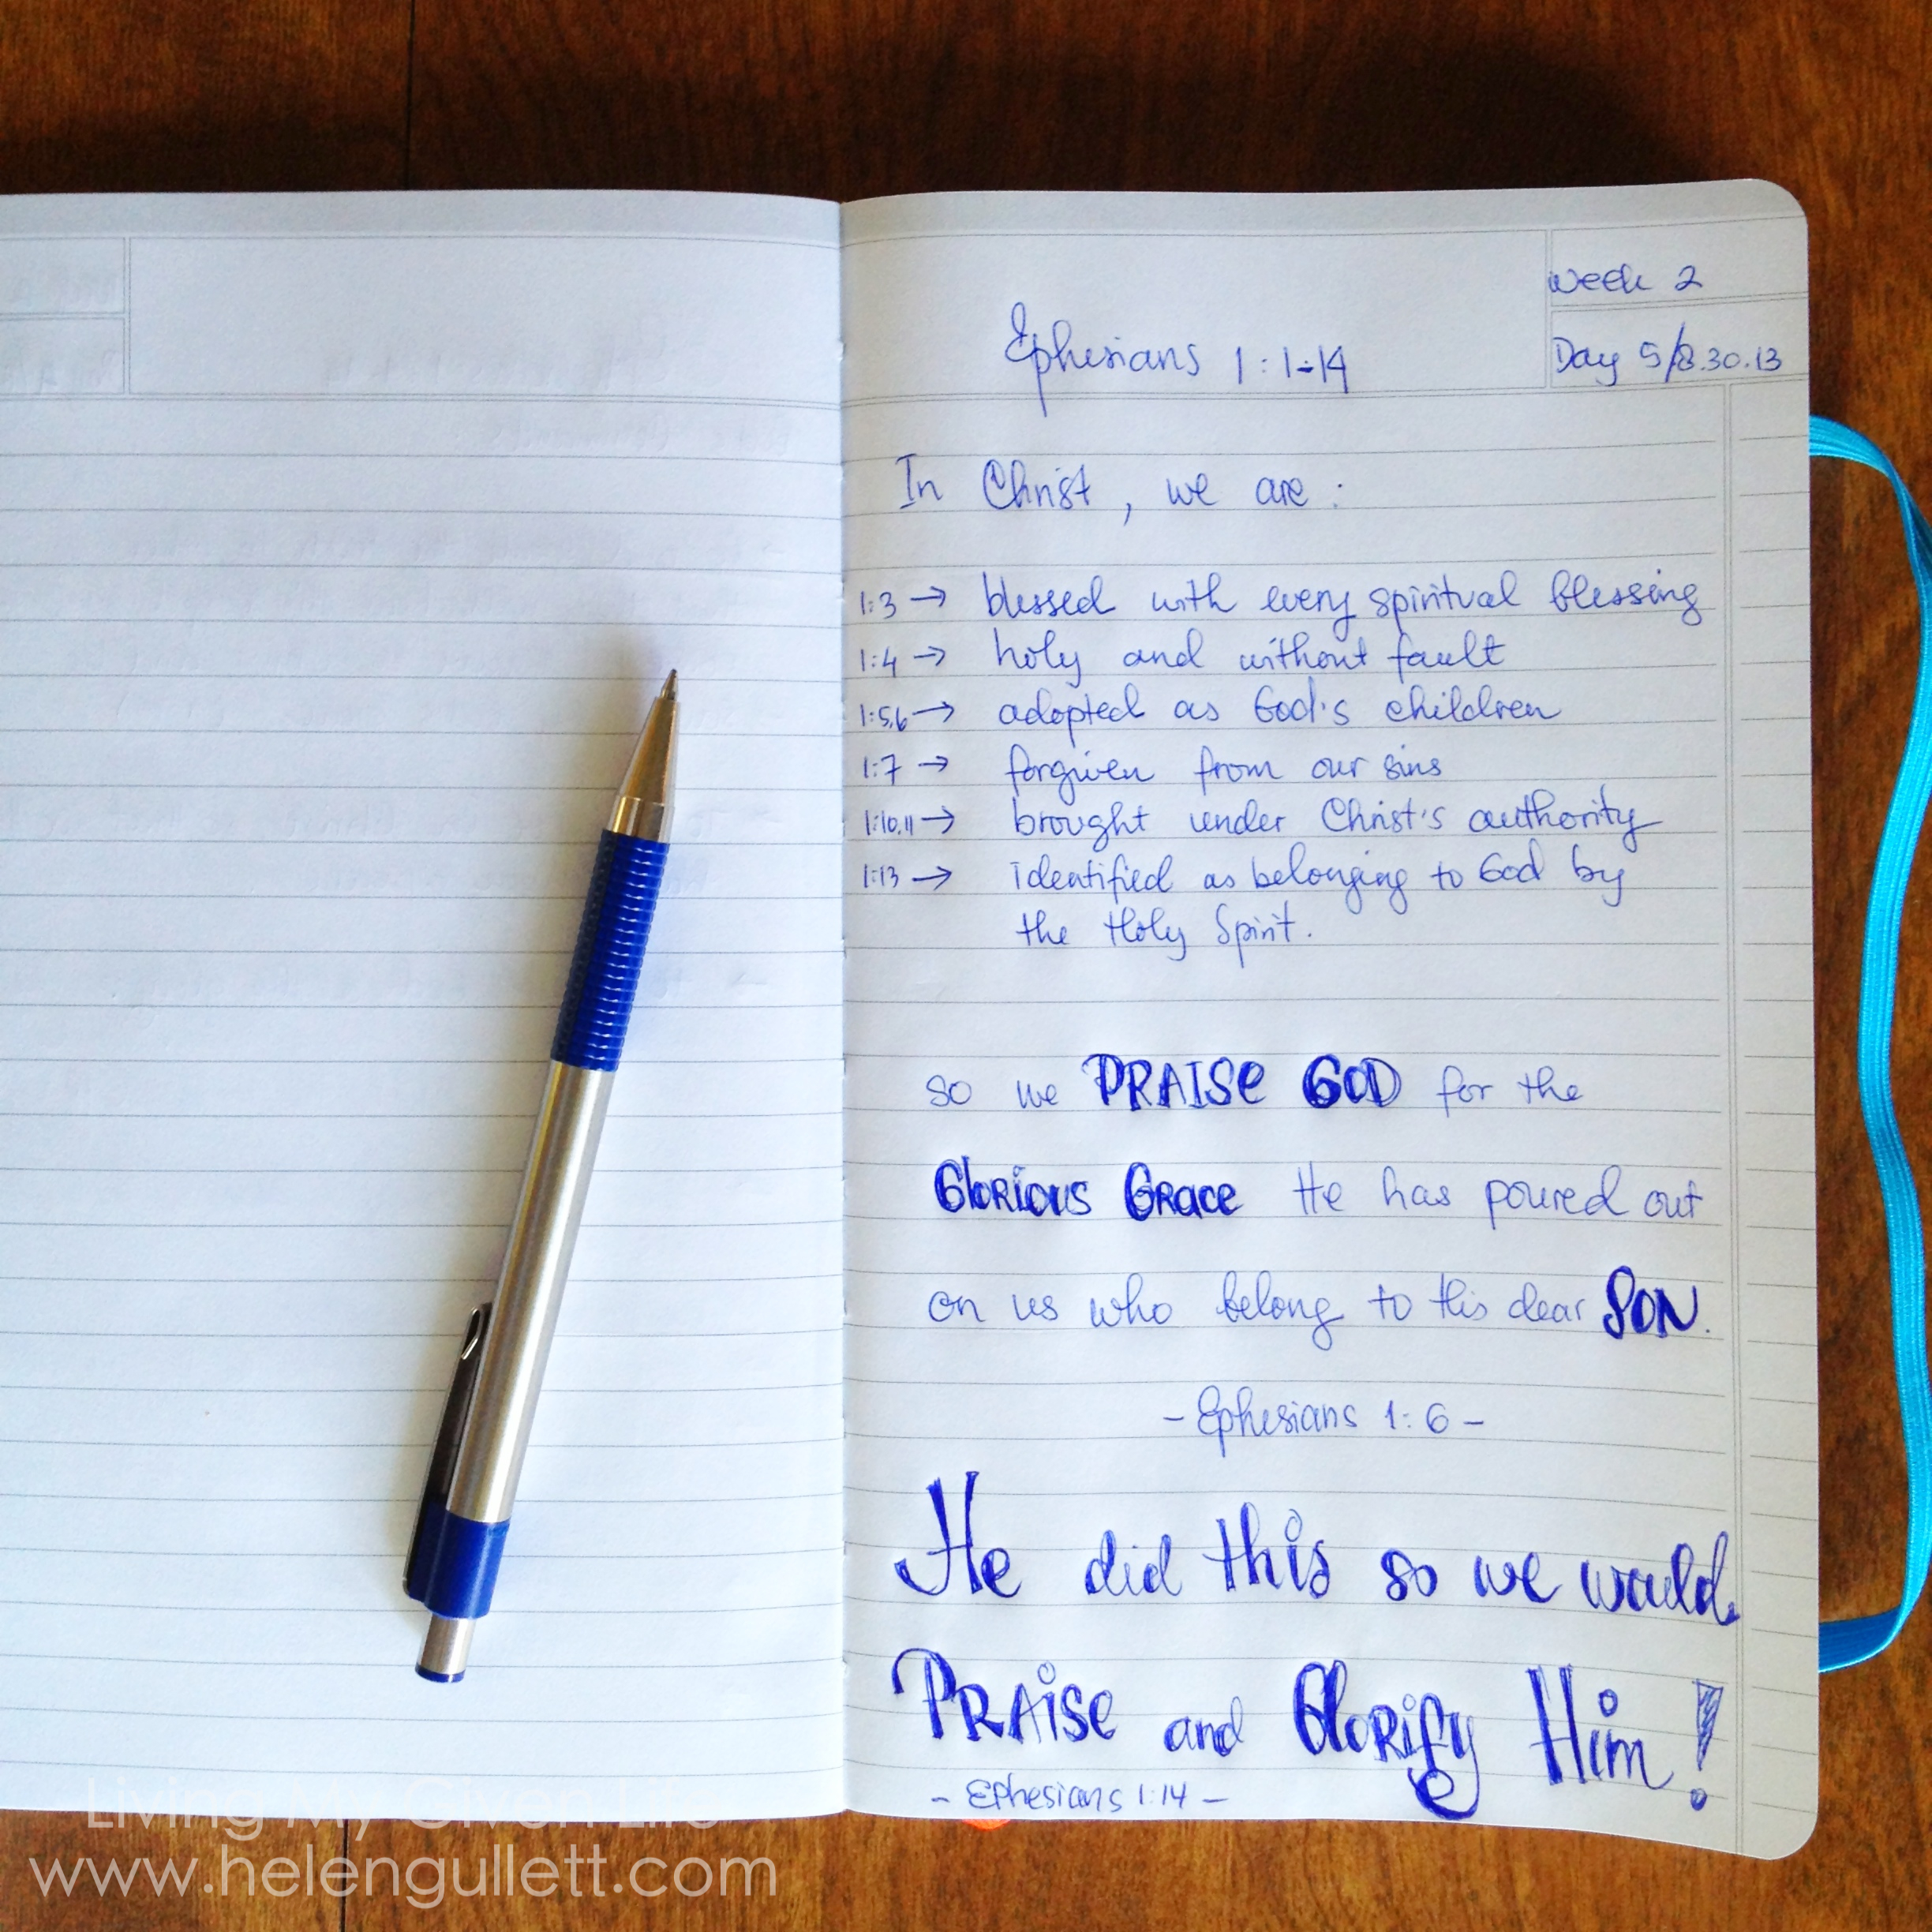 Week 2
Ephesians 1:1-14
Day 5/8.30.13
In Christ, we are:
1:3 → blessed with every spiritual blessing
1:4 → holy and without fault
1:5,6 → adopted as God's children
1:7 → forgiven from our sins
1:10,11 → brought under Christ's authority
1:13 → identified as belonging to God by
the Holy Spirit.
so we PRAISE GOD for the
Glorious Grace He has poured out
on us who belong to His dear SON.
- Ephesians 1:6 -
He did this so we would
PRAISE and Glorify Him!
- Ephesians 1:14 -
Living My Given Life
www.helengullett.com